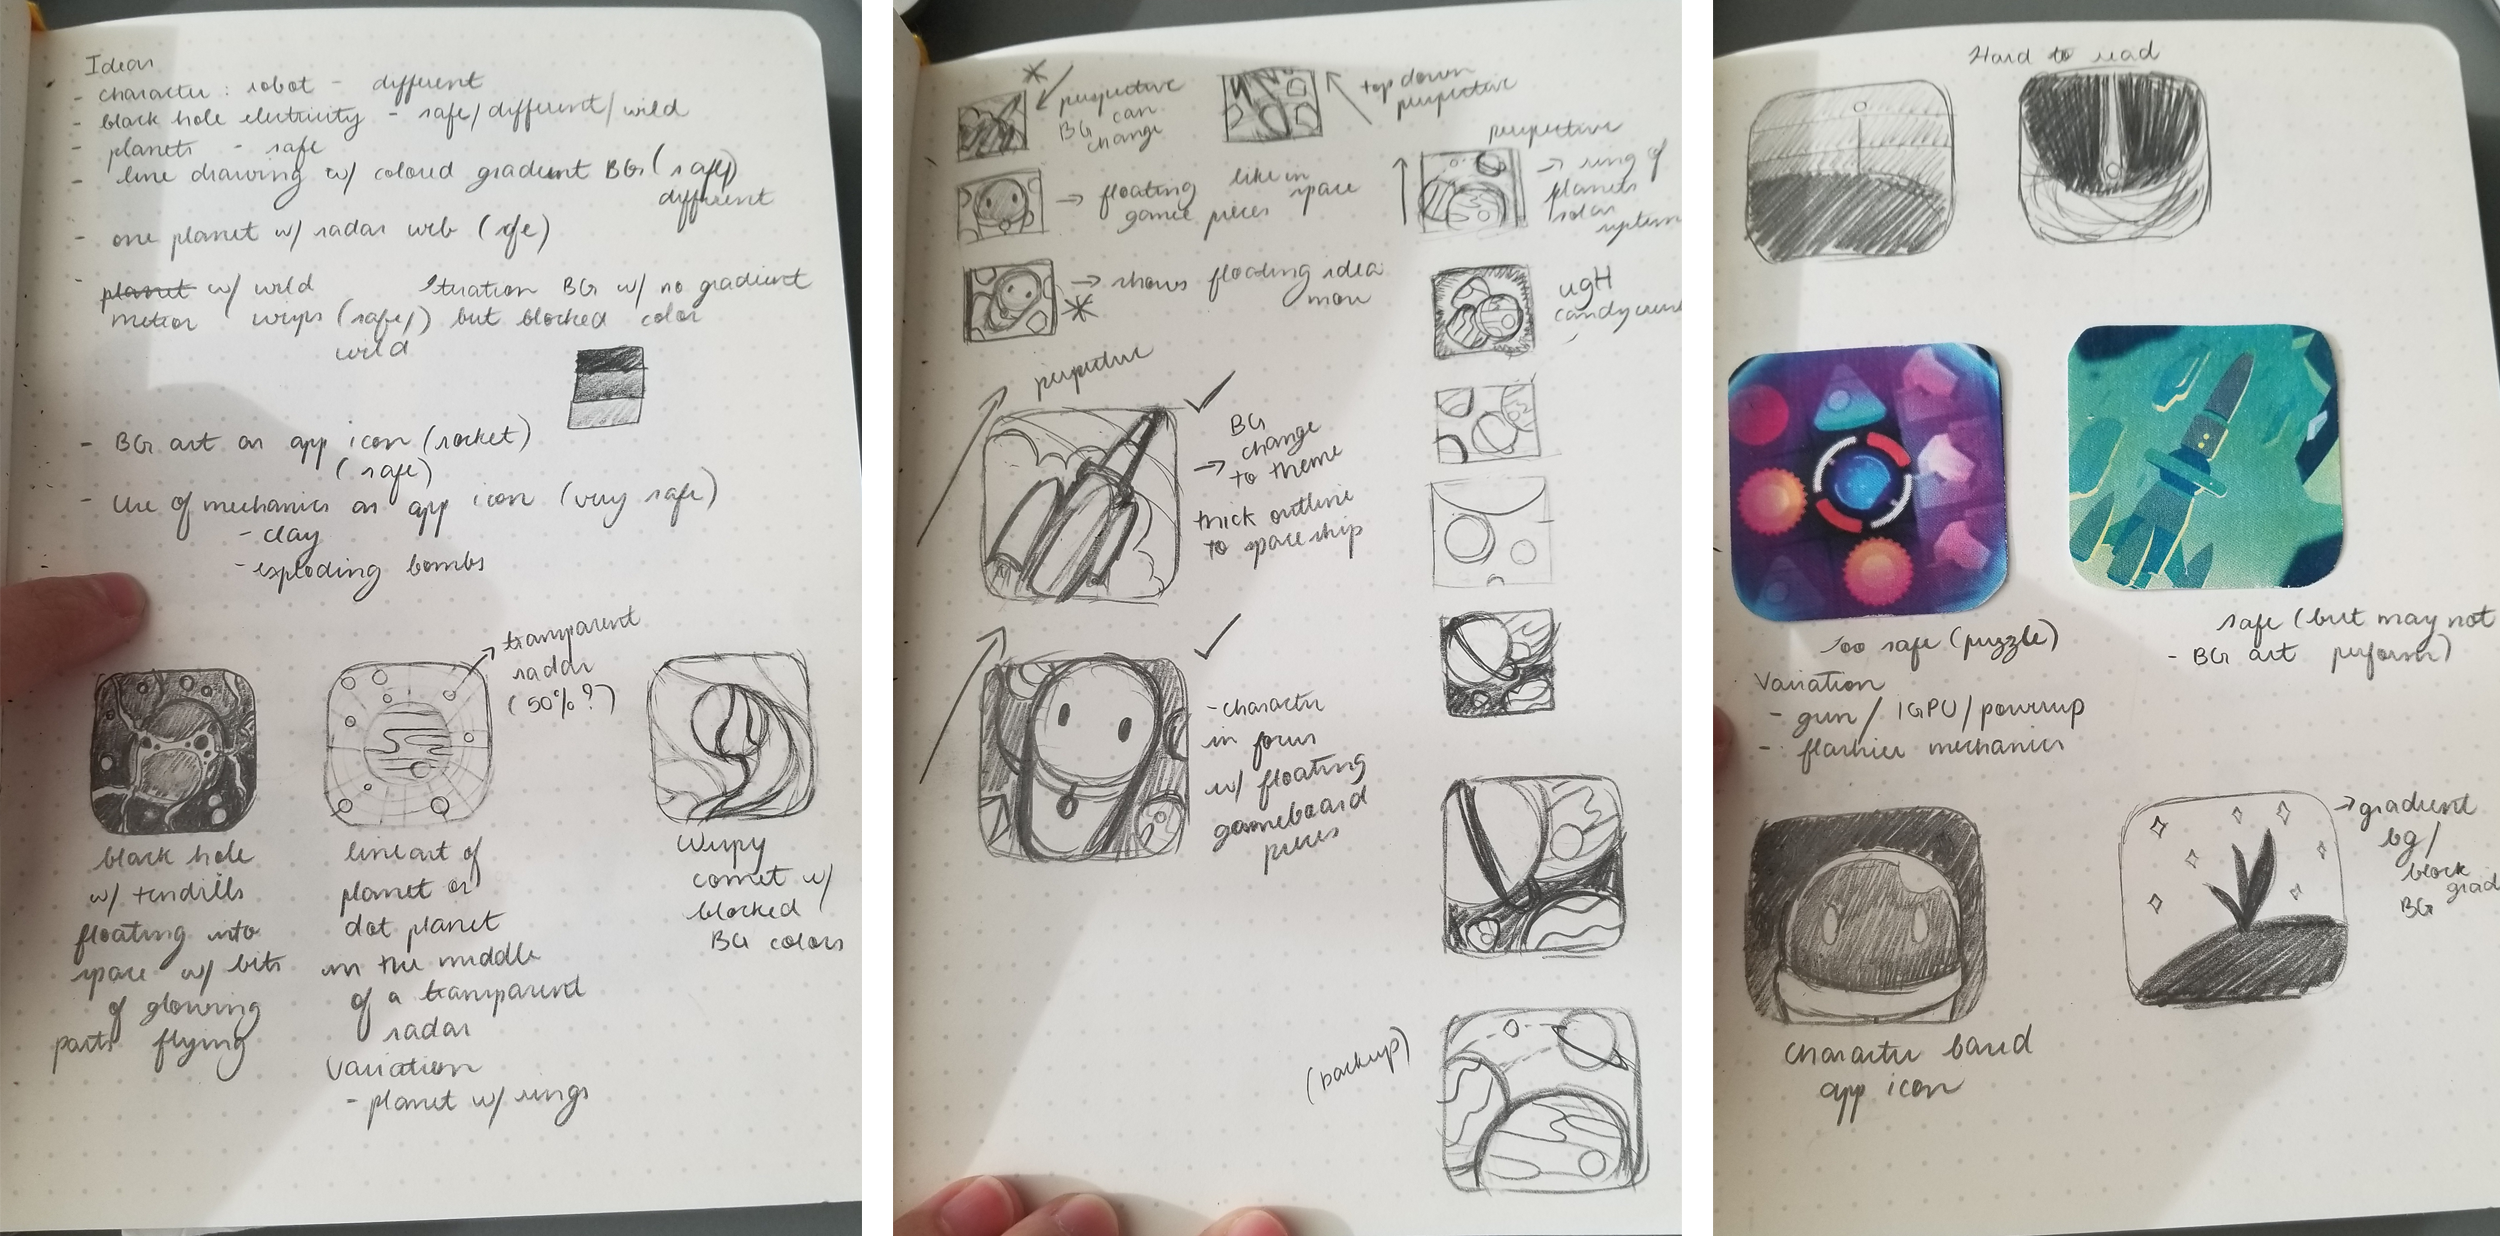 Ideas
- character: robot - different
- black hole electricity - safe/different/wild
- planets - safe
- line drawing w/ colored gradient BG (safe)
different
- one planet w/ radar web (safe)
- planet w/ wild
meteor wisps (safe/)
wild
BG w/ no gradient
but blocked color
- BG art as app icon (rocket)
(safe)
- Use of mechanics as app icon (very safe)
- clay
- exploding bombs
transparent
radar
(50%?)
black hole
w/ tendrills
floating into
space w/ bits
of glowing
parts flying
lineart of
planet or
dot planet
in the middle
of a transparent
radar
Variation
- planet w/ rings
Wispy
comet w/
blocked
BG colors
perspective
BG can
change
top down
perspective
floating like in
game pieces space
perspective
ring of
planets
solar
system
shows floating idea
more
ugH
candycrush
perspective
BG
change
to theme
thick outline
to spaceship
- character
in focus
w/ floating
gameboard
pieces
(backup)
Hard to read
Too safe (puzzle)
safe (but may not
- BG art perform)
Variation
- gun/IGPU/powerup
- flashier mechanics
character based
app icon
gradient
bg/
block
grad
BG